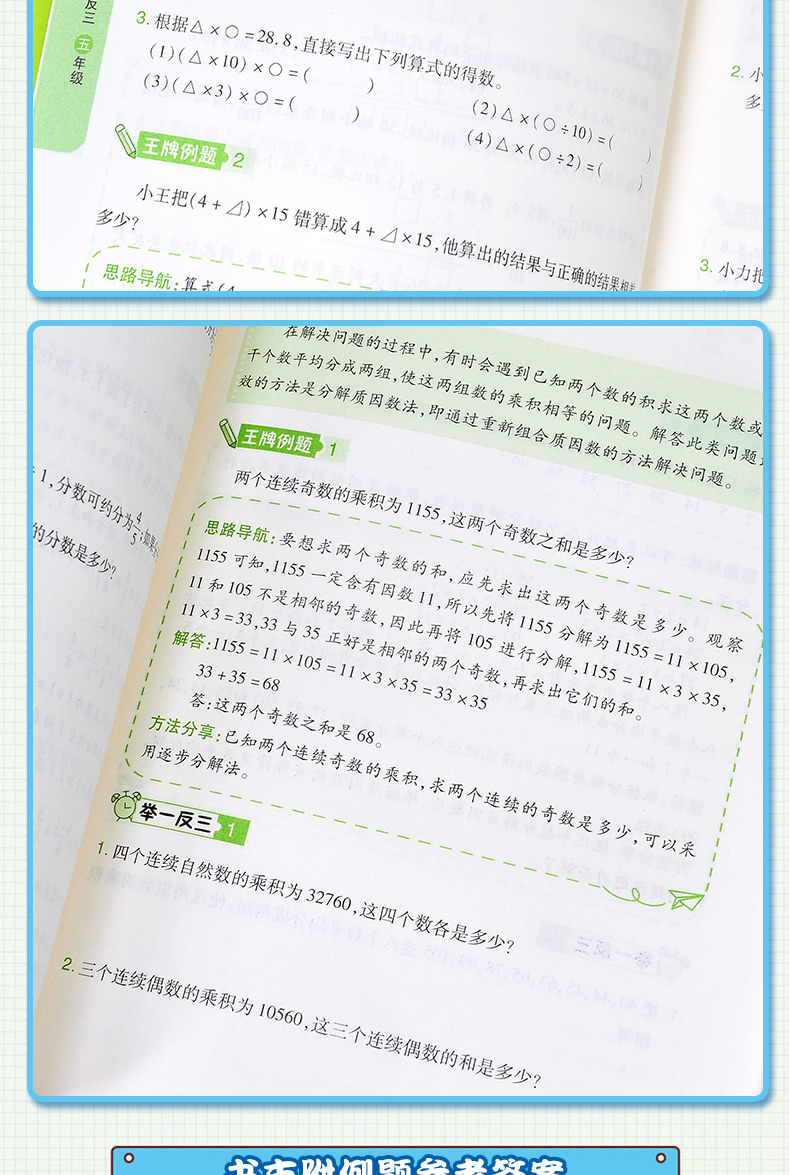 反三 五年级
3. 根据△×○=28.8,直接写出下列算式的得数。
(1)(△×10)×○=(  )
(2)△×(○÷10)=(  )
(3)(△×3)×○=(  )
(4)△×(○÷2)=(  )
王牌例题 2
小王把(4+△)×15错算成4+△×15,他算出的结果与正确的结果相
多少?
思路导航:算式(4
2. 小
多
3. 小力把
在解决问题的过程中,有时会遇到已知两个数的积求这两个数或
千个数平均分成两组,使这两组数的乘积相等的问题。解答此类问题
数的方法是分解质因数法,即通过重新组合质因数的方法解决问题。
王牌例题 1
两个连续奇数的乘积为1155,这两个奇数之和是多少?
思路导航:要想求两个奇数的和,应先求出这两个奇数是多少。观察
1155可知,1155一定含有因数11,所以先将1155分解为1155=11×105,
11和105不是相邻的奇数,因此再将105进行分解,1155=11×3×35,
11×3=33,33与35正好是相邻的两个奇数,再求出它们的和。
解答:1155=11×105=11×3×35=33×35
33+35=68
答:这两个奇数之和是68。
方法分享:已知两个连续奇数的乘积,求两个连续的奇数是多少,可以采
用逐步分解法。
举一反三 1
1. 四个连续自然数的乘积为32760,这四个数各是多少?
2. 三个连续偶数的乘积为10560,这三个连续偶数的和是多少?
1,分数可约分为4/5;如果
的分数是多少?
书末附例题参考答案